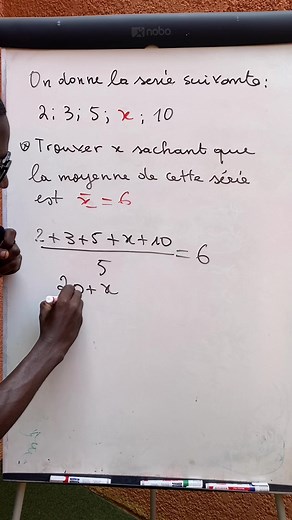 nobo
On donne la serie suivante:
2; 3; 5; x; 10
Trouver x sachant que
la moyenne de cette série
est x̄ = 6
2+3+5+x+10
5
= 6
20+x